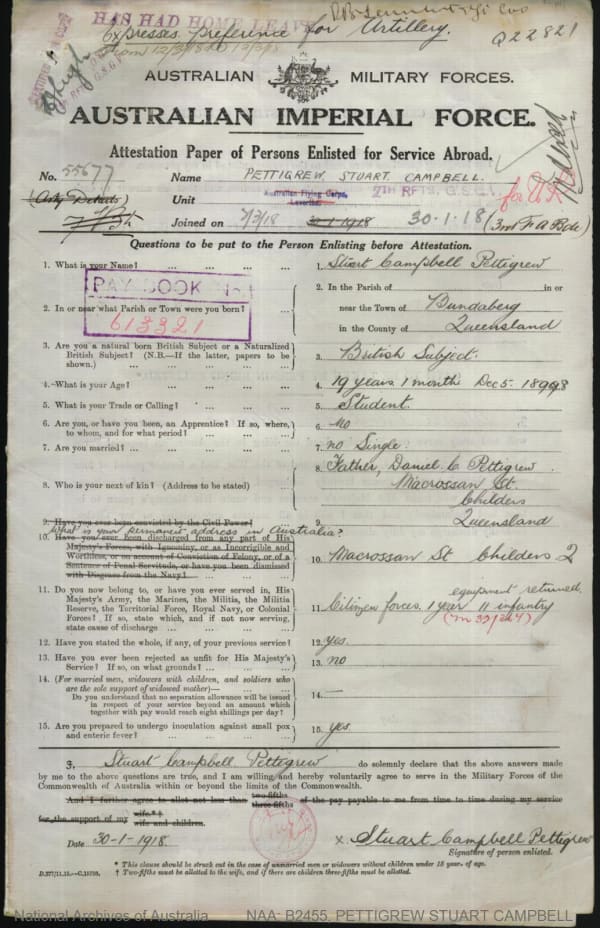 HAS HAD HOME LEAVE
Expresses preference for Artillery.
From 12/3/18 to
Q22821
AUSTRALIAN MILITARY FORCES.
AUSTRALIAN IMPERIAL FORCE.
Attestation Paper of Persons Enlisted for Service Abroad.
No. 55677 Name PETTIGREW, STUART CAMPBELL.
Unit Australian Flying Corps, Laverton. 7TH RFTS, G.S.
Joined on 7/3/18 30-1-1918 30-1-18 (3rd F A Bde)
Questions to be put to the Person Enlisting before Attestation.
1. What is your Name? ... ... ... ... 1. Stuart Campbell Pettigrew
PAY BOOK No
613321
2. In or near what Parish or Town were you born? ... 2. In the Parish of in or
near the Town of Bundaberg
in the County of Queensland
3. Are you a natural born British Subject or a Naturalized
British Subject? (N.B.—If the latter, papers to be
shown.) ... ... ... ... ... 3. British Subject.
4. What is your Age? ... ... ... ... 4. 19 years 1 month Dec 5. 1898
5. What is your Trade or Calling? ... ... ... 5. Student.
6. Are you, or have you been, an Apprentice? If so, where,
to whom, and for what period? ... ... ... 6. no
7. Are you married? ... ... ... ... ... 7. no Single.
8. Who is your next of kin? (Address to be stated) 8. Father, Daniel C Pettigrew.
Macrossan St.
Childers
Queensland
9. Have you ever been convicted by the Civil Power? ... 9.
What is your permanent address in Australia?
10. Have you ever been discharged from any part of His
Majesty's Forces, with Ignominy, or as Incorrigible and
Worthless, or on account of Conviction of Felony, or of a
Sentence of Penal Servitude, or have you been dismissed
with Disgrace from the Navy? ... ... ... 10. Macrossan St Childers Q
11. Do you now belong to, or have you ever served in, His
Majesty's Army, the Marines, the Militia, the Militia
Reserve, the Territorial Force, Royal Navy, or Colonial
Forces? If so, state which, and if not now serving,
state cause of discharge ... ... ... ... 11. Citizen forces. 1 year 11 infantry
equipment returned.
12. Have you stated the whole, if any, of your previous service? 12. yes.
13. Have you ever been rejected as unfit for His Majesty's
Service? If so, on what grounds? ... ... ... 13. no
14. (For married men, widowers with children, and soldiers who
are the sole support of widowed mother)—
Do you understand that no separation allowance will be issued
in respect of your service beyond an amount which
together with pay would reach eight shillings per day? 14. —
15. Are you prepared to undergo inoculation against small pox
and enteric fever? ... ... ... ... 15. yes.
I, Stuart Campbell Pettigrew do solemnly declare that the above answers made
by me to the above questions are true, and I am willing and hereby voluntarily agree to serve in the Military Forces of the
Commonwealth of Australia within or beyond the limits of the Commonwealth.
And I further agree to allot not less than two-fifths three-fifths of the pay payable to me from time to time during my service
for the support of my wife.*† wife and children.
Date 30-1-1918. x. Stuart Campbell Pettigrew
Signature of person enlisted.
* This clause should be struck out in the case of unmarried men or widowers without children under 18 years of age.
† Two-fifths must be allotted to the wife, and if there are children three-fifths must be allotted.
National Archives of Australia NAA: B2455, PETTIGREW STUART CAMPBELL